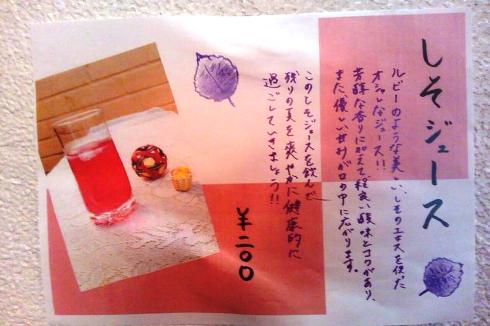 しそジュース
ルビーのような美しい、しそのエキスを使った
オシャレなジュース!!
芳醇な香りに加えて、程良い酸味とコクがあり、
また、優しい甘サが口の中に広がります。
このしそジュースを飲んで
残りの夏を爽やかに健康的に
過ごしていきましょう!!
¥二〇〇